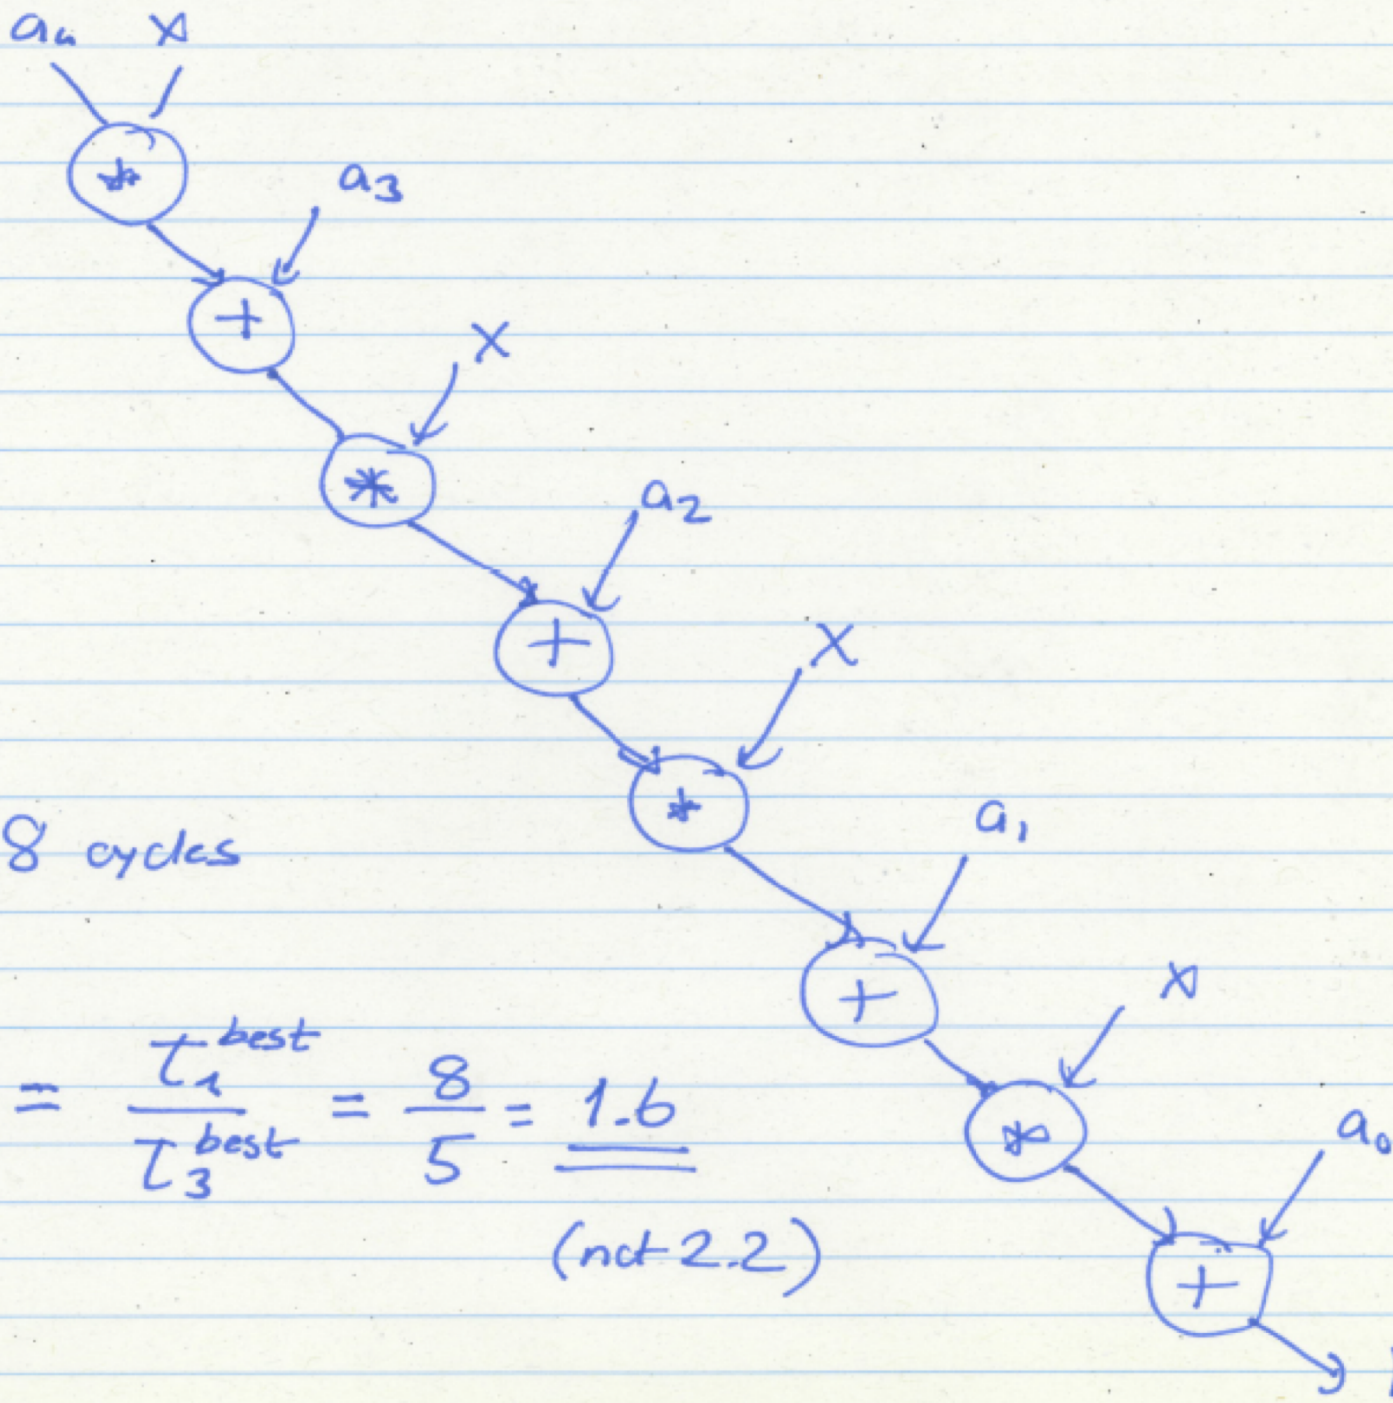 a₄ x
*
a₃
+
x
*
a₂
+
x
*
a₁
8 cycles
+
x
= T₁^best / T₃^best = 8/5 = 1.6
*
a₀
(not 2.2)
+